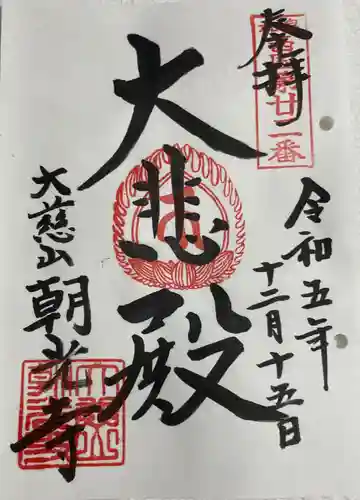 奉拝
廿一番
令和五年
十二月十五日
大悲殿
大慈山
朝光寺